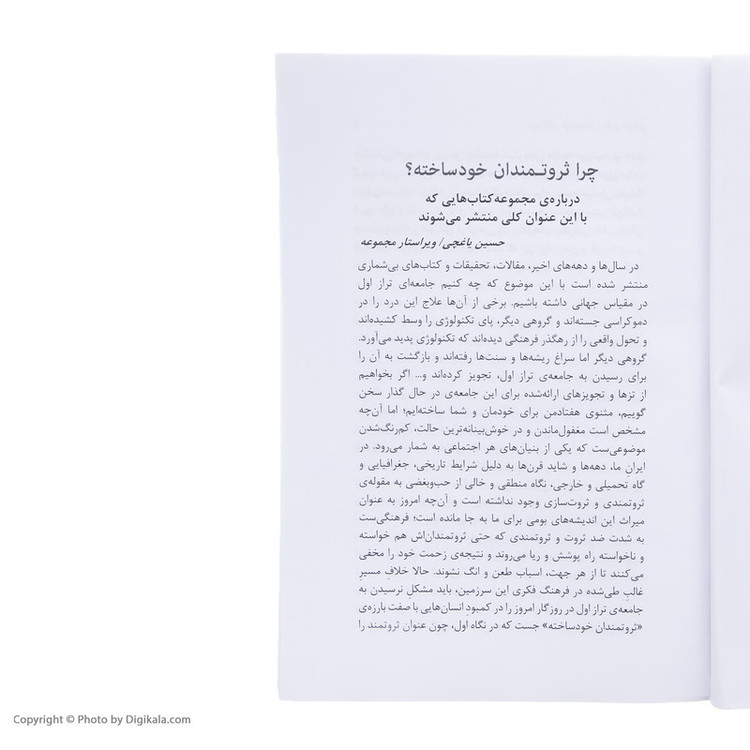 چرا ثروتـمندان خودساخته؟
درباره‌ی مجموعه‌کتاب‌هایی که
با این عنوان کلی منتشر می‌شوند
حسین یاغچی/ ویراستار مجموعه
در سال‌ها و دهه‌های اخیر، مقالات، تحقیقات و کتاب‌های بی‌شماری
منتشر شده است با این موضوع که چه کنیم جامعه‌ای تراز اول
در مقیاس جهانی داشته باشیم. برخی از آن‌ها علاج این درد را در
دموکراسی جسته‌اند و گروهی دیگر، پای تکنولوژی را وسط کشیده‌اند
و تحول واقعی را از رهگذر فرهنگی دیده‌اند که تکنولوژی پدید می‌آورد.
گروهی دیگر اما سراغ ریشه‌ها و سنت‌ها رفته‌اند و بازگشت به آن را
برای رسیدن به جامعه‌ی تراز اول، تجویز کرده‌اند و... اگر بخواهیم
از تزها و تجویزهای ارائه‌شده برای این جامعه‌ی در حال گذار سخن
گوییم، مثنوی هفتادمن برای خودمان و شما ساخته‌ایم؛ اما آن‌چه
مشخص است مغفول‌ماندن و در خوش‌بینانه‌ترین حالت، کم‌رنگ‌شدن
موضوعی‌ست که یکی از بنیان‌های هر اجتماعی به شمار می‌رود. در
ایرانِ ما، دهه‌ها و شاید قرن‌ها به دلیل شرایط تاریخی، جغرافیایی و
گاه تحمیلی و خارجی، نگاه منطقی و خالی از حب‌وبغضی به مقوله‌ی
ثروتمندی و ثروت‌سازی وجود نداشته است و آن‌چه امروز به عنوان
میراث این اندیشه‌های بومی برای ما به جا مانده است؛ فرهنگی‌ست
به شدت ضد ثروت و ثروتمندی که حتی ثروتمندان‌اش هم خواسته
و ناخواسته راه پوشش و ریا می‌روند و نتیجه‌ی زحمت خود را مخفی
می‌کنند تا از هر جهت، اسباب طعن و انگ نشوند. حالا خلافِ مسیرِ
غالبِ طی‌شده در فرهنگ فکری این سرزمین، باید مشکلِ نرسیدن به
جامعه‌ی تراز اول در روزگار امروز را در کمبودِ انسان‌هایی با صفت بارزه‌ی
«ثروتمندان خودساخته» جست که در نگاه اول، چون عنوان ثروتمند را
Copyright © Photo by Digikala.com